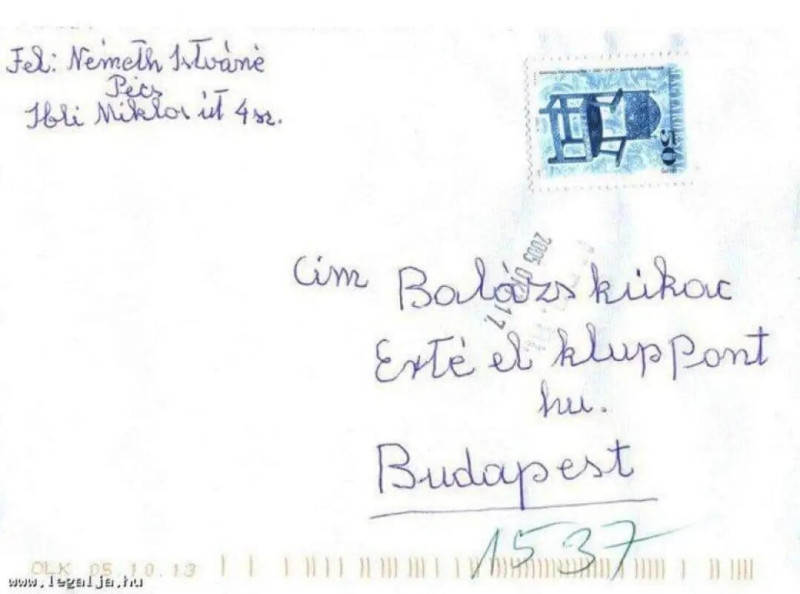 Fel: Németh Istváné
Pécs
Ibli Miklos út 4sz.
50
cím Balázs kukac
Erté el kluppont
hu.
Budapest
1537
OLK 05.10.13
www.legalja.hu